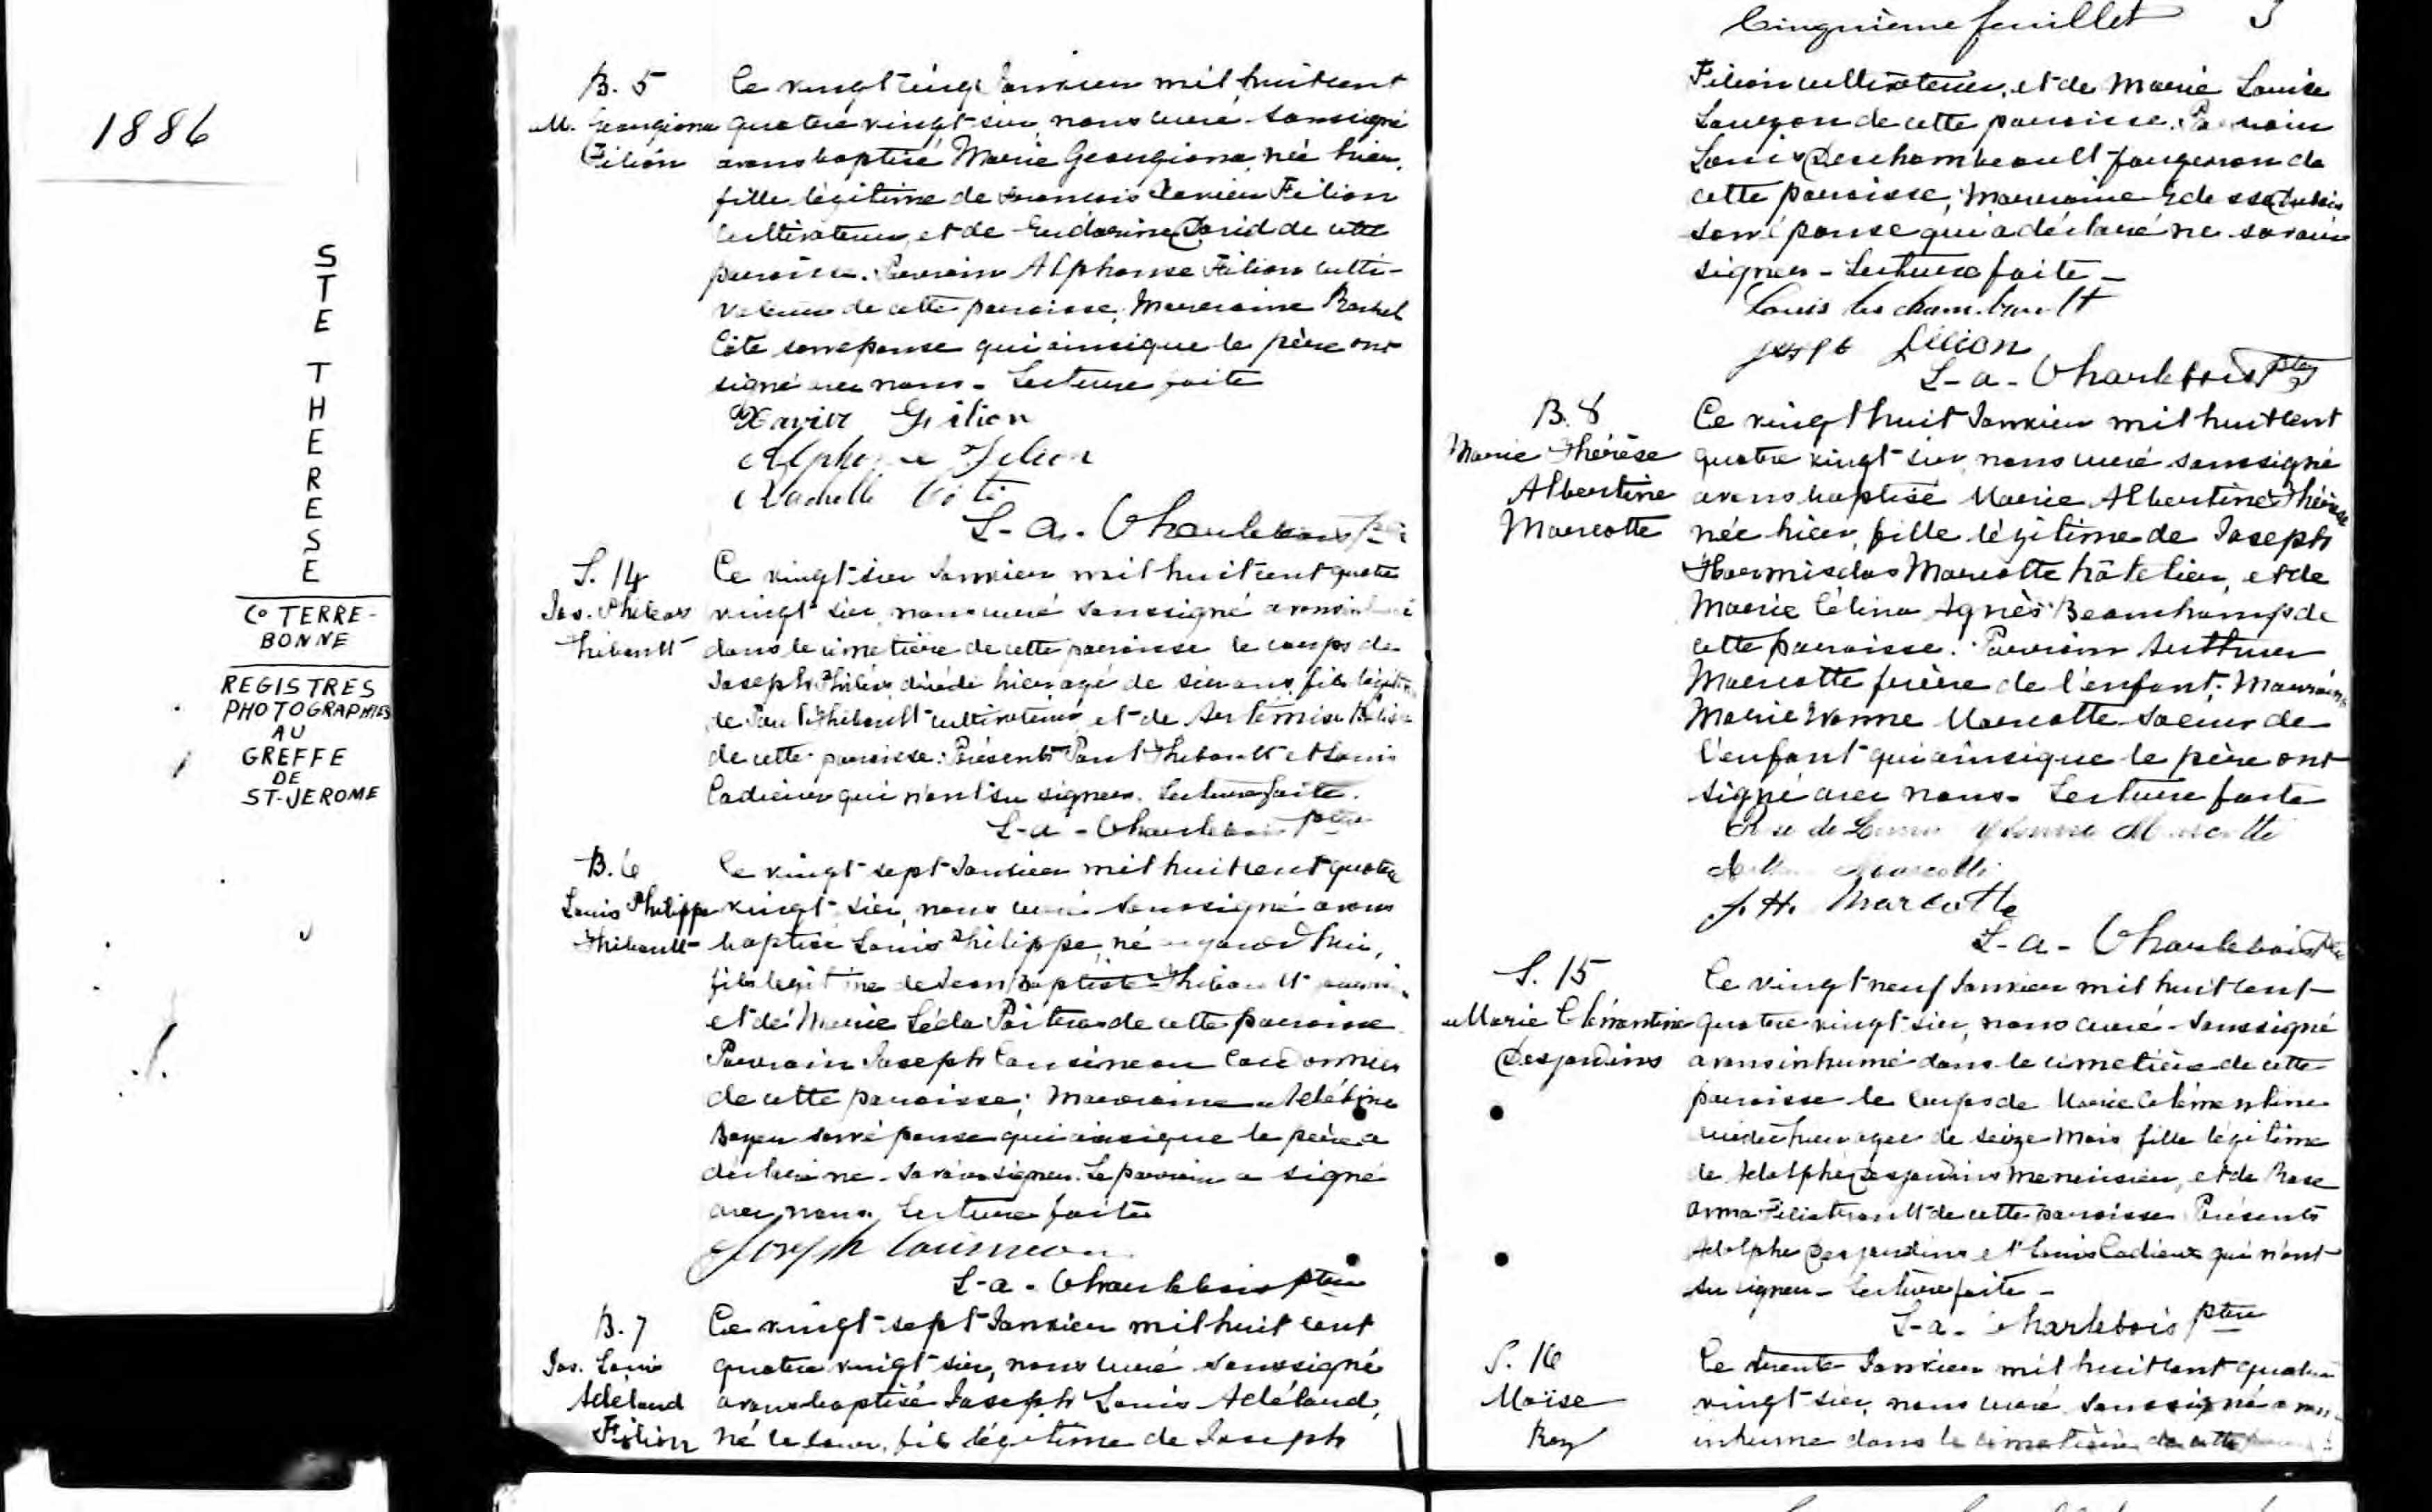 1886
STE THERESE
Co TERRE-
BONNE
REGISTRES
PHOTOGRAPHIES
AU
GREFFE
DE
ST-JEROME
B. 5
M. Georgiana
Filion
Ce vingt cinq Janvier mil huit cent
quatre vingt six, nous curé soussigné
avons baptisé Marie Georgiana, née hier,
fille légitime de François Xavier Filion
cultivateur, et de David de cette
paroisse. Parrain Alphonse Filion culti-
vateur de cette paroisse; Marraine Rachel
Côté son épouse qui ainsi que le père ont
signé avec nous. Lecture faite
Xavier Filion
Alphonse Filion
Rachelle Côté
L-a. Charlebois Ptre
S. 14
Jos. Philéas
Thibault
Ce vingt six Janvier mil huit cent quatre
vingt six, nous curé soussigné avons inhumé
dans le cimetière de cette paroisse le corps de
Joseph Philéas, décédé hier, agé de six ans, fils légitime
de Paul Thibault cultivateur, et de Artémise
de cette paroisse. Présents Paul Thibault et Louis
Cadieux qui n'ont su signer. Lecture faite.
L-a-Charlebois ptre
B. 6
Louis Philippe
Thibault
Ce vingt sept Janvier mil huit cent quatre
vingt six, nous curé soussigné avons
baptisé Louis Philippe, né aujourd'hui,
fils légitime de Jean Baptiste Thibault
et de Marie Léda Poitras de cette paroisse
Parrain Joseph Cousineau Cordonnier
de cette paroisse; Marraine
Boyer son épouse qui ainsi que le père a
déclaré ne savoir signer. Le parrain a signé
avec nous. Lecture faite
Joseph Cousineau
L-a-Charlebois ptre
B. 7
Jos. Louis
Adélard
Filion
Ce vingt-sept Janvier mil huit cent
quatre vingt six, nous curé soussigné
avons baptisé Joseph Louis Adélard,
né le jour, fils légitime de Joseph
Cinquième feuillet 5
Filion cultivateur, et de Marie Louise
Lauzon de cette paroisse. Parrain
Louis Deschambeault forgeron de
cette paroisse; Marraine
son épouse qui a déclaré ne savoir
signer - Lecture faite -
Louis Deschambault
Joseph Filion
L-a-Charlebois Ptre
B. 8
Marie Thérèse
Albertine
Marcotte
Ce vingt huit Janvier mil huit cent
quatre vingt six, nous curé soussigné
avons baptisé Marie Albertine Thérèse
née hier, fille légitime de Joseph
Hormisdas Marcotte hôtelier, et de
Marie Célina Agnès Beauchamp de
cette paroisse. Parrain Arthur
Marcotte frère de l'enfant; Marraine
Marie Yvonne Marcotte soeur de
l'enfant qui ainsi que le père ont
signé avec nous. Lecture faite
Yvonne Marcotte
Arthur Marcotte
J. H. Marcotte
L-a-Charlebois Ptre
S. 15
Marie Clémentine
Desjardins
Ce vingt neuf Janvier mil huit cent
quatre vingt six, nous curé soussigné
avons inhumé dans le cimetière de cette
paroisse le corps de Marie Clémentine
décédée hier, agée de seize mois fille légitime
de Adolphe Desjardins menuisier, et de Rose
Anna Filiatrault de cette paroisse Présents
Adolphe Desjardins et Louis Cadieux qui n'ont
su signer - Lecture faite -
L-a-Charlebois Ptre
S. 16
Moïse
Roy
Ce trente Janvier mil huit cent quatre
vingt six, nous curé soussigné avons
inhumé dans le cimetière de cette